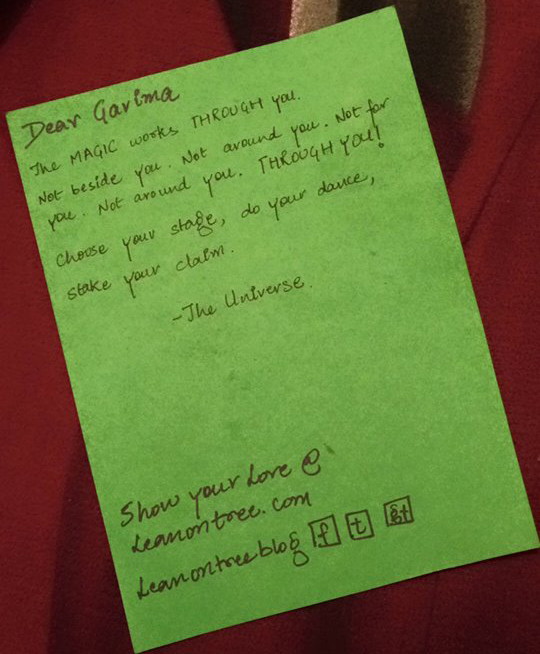 Dear Garima
The MAGIC works THROUGH you.
Not beside you. Not around you. Not for
you. Not around you. THROUGH YOU!
Choose your stage, do your dance,
stake your claim.
-The Universe.
Show your Love @
Leanontree.com
Leanontreeblog f t gt